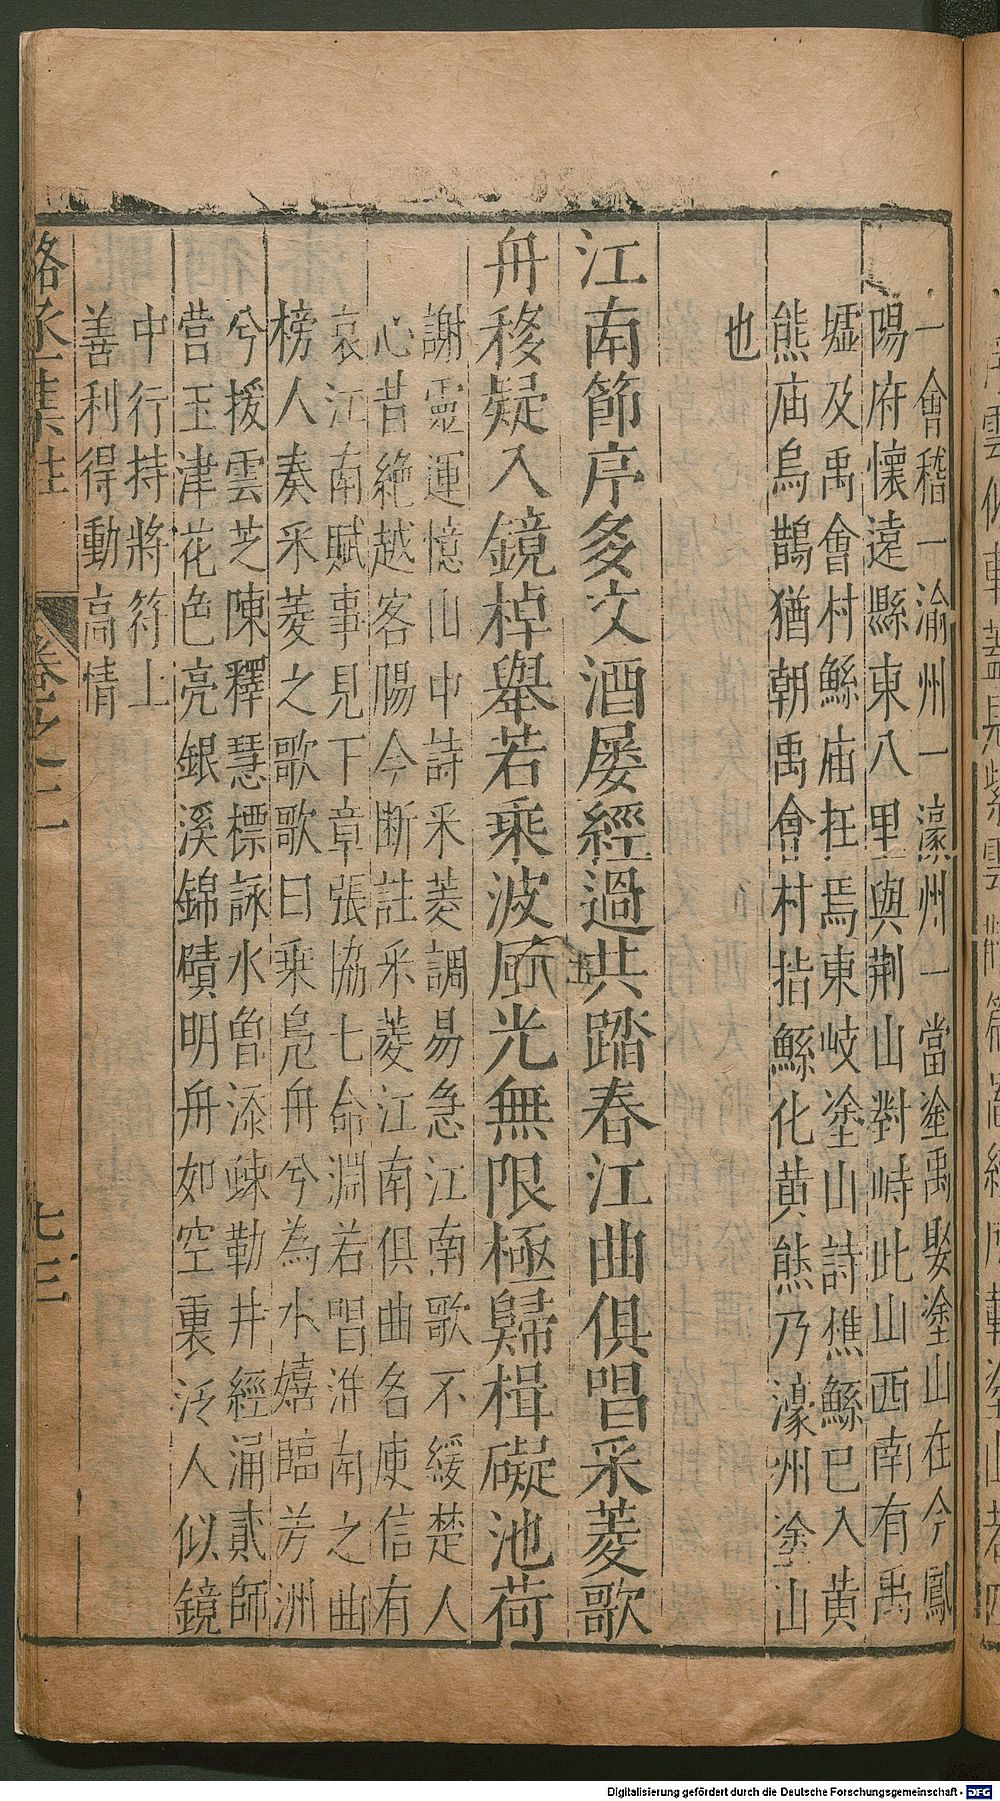 一會稽一渝州一濠州一當塗禹娶塗山在今鳳
陽府懷遠縣東八里與荆山對峙此山西南有禹
墟及禹會村鯀庙在焉東岐塗山詩僬鯀已入黄
熊庙烏鵲猶朝禹會村措鯀化黄熊乃濠州塗山
也
江南節序多文酒屡經過共踏春江曲俱唱采菱歌
舟移疑入鏡棹舉若乘波風光無限極歸楫礙池荷
謝靈運憶山中詩采菱調易急江南歌不緩楚人
心昔絶越客腸今断註采菱江南俱曲名庾信有
哀江南賦事見下章張協七命淵若唱淮南之曲
榜人奏采菱之歌歌曰乘鳧舟兮為水嬉臨芳洲
兮援雲芝陳釋慧標詠水魯添疎勒井經涌貳師
营玉津花色亮銀溪錦磧明舟如空裏泛人似鏡
中行持將符上
善利得動高情
駱丞集註
卷之二
七三
Digitalisierung gefördert durch die Deutsche Forschungsgemeinschaft - DFG